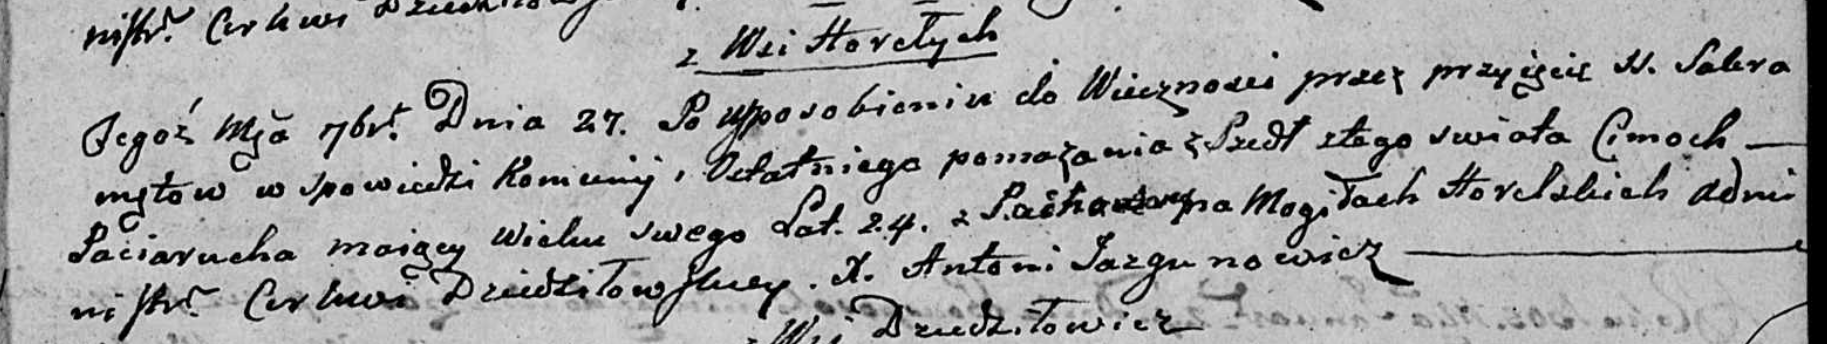 nistr. Cerkwi
z Wsi Horełych
Tegoż Mca 7br. Dnia 27. Po usposobieniu do Wiecznosci przez przyięcie SS. Sakra
mętow w Spowiedzi Komunij, Ostatniego pomazania zszedł z tego swiata Cimoch —
Paciarucha maiący Wieku swego Lat. 24. na Mogiłach Horelskich Admi
nistr. Cerkwi Dziedziłowskiey. X. Antoni Jazgunowicz —
z Wsi Dziedziłowicz